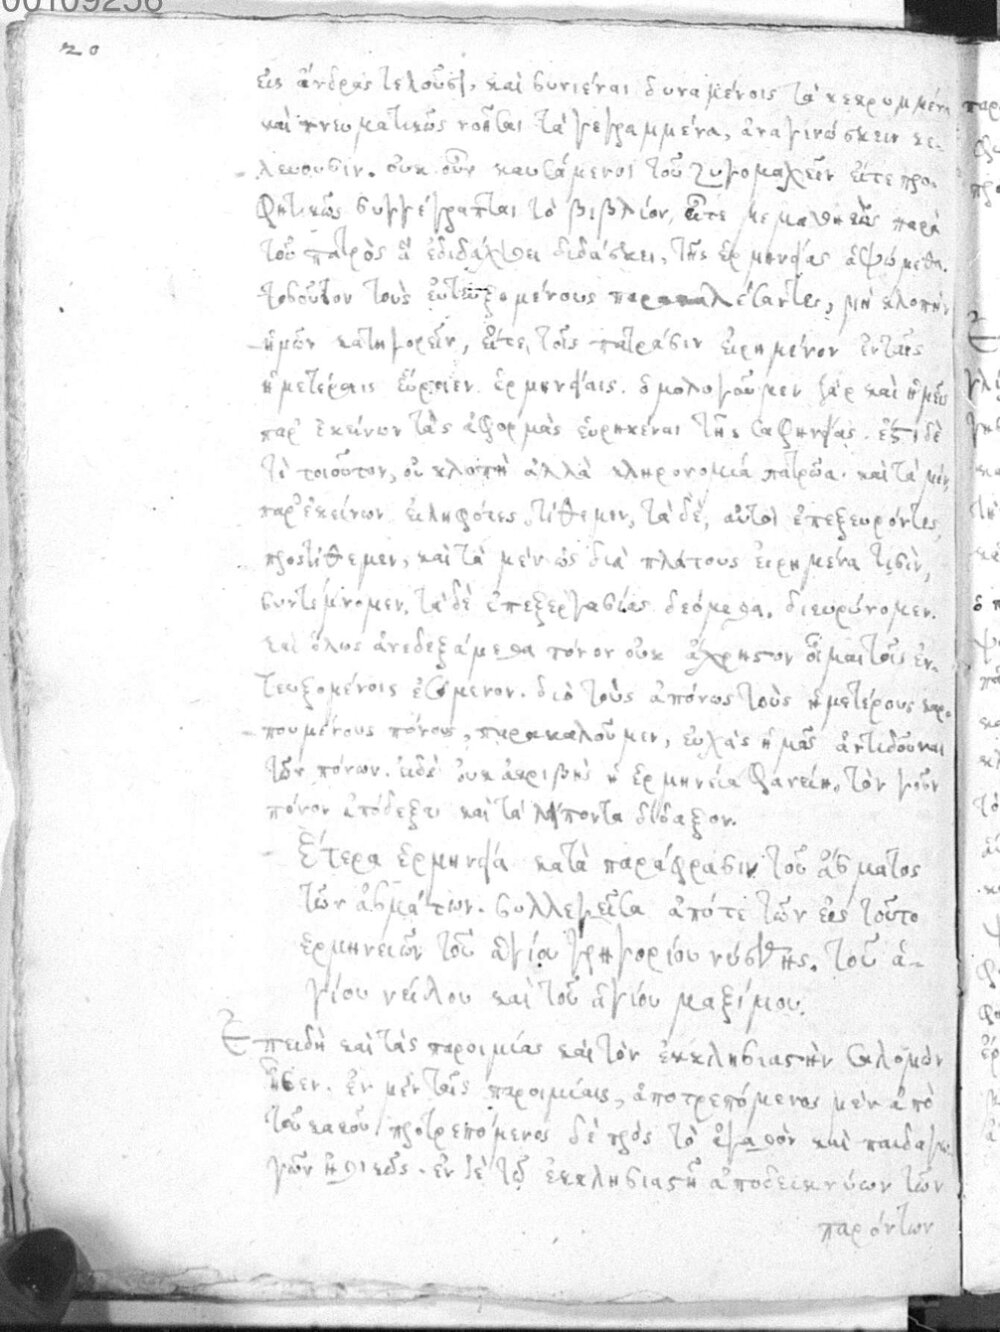 00109256
20
εἰς ἄνδρας τελοῦσι, καὶ συνιέναι δυναμένοις τὰ κεκρυμμένα
καὶ πνευματικῶς νοεῖσθαι τὰ γεγραμμένα, ἀναγινώσκειν κε-
λεύουσιν. οὐκ οὖν παυσάμενοι τοῦ ζυγομαχεῖν εἴτε προ-
φητικῶς συγγέγραπται τὸ βιβλίον, εἴτε μεμαθηκὼς παρὰ
τοῦ πατρὸς ἃ ἐδιδάχθη διδάσκει, τῆς ἑρμηνείας ἁψώμεθα.
τοσοῦτον τοὺς ἐντευξομένους παρακαλέσαντες, μὴ κλοπὴν
ἡμῶν κατηγορεῖν, εἴτε τοῖς πατράσιν εἰρημένον ἐν ταῖς
ἡμετέραις εὕροιεν ἑρμηνείαις. ὁμολογοῦμεν γὰρ καὶ ἡμεῖς
παρ' ἐκείνων τὰς ἀφορμὰς εὑρηκέναι τῆς σαφηνείας. ἔστι δὲ
τὸ τοιοῦτον, οὐ κλοπὴ ἀλλὰ κληρονομία πατρῶα. καὶ τὰ μὲν
παρ' ἐκείνων εἰληφότες, τίθεμεν, τὰ δὲ, αὐτοὶ ἐπεξευρόντες
προστίθεμεν, καὶ τὰ μὲν ὡς διὰ πλάτους εἰρημένα τισὶν,
συντέμνομεν, τὰ δὲ ἐπεξεργασίας δεόμενα, διευρύνομεν.
καὶ ὅλως ἀνεδεξάμεθα πόνον οὐκ ἄχρηστον οἶμαι τοῖς ἐν-
τευξομένοις ἐσόμενον. διὸ τοὺς ἀπόνως τοὺς ἡμετέρους καρ-
πουμένους πόνους, παρακαλοῦμεν, εὐχὰς ἡμᾶς ἀντιδοῦναι
τῶν πόνων. εἰ δὲ οὐκ ἀκριβὴς ἡ ἑρμηνεία φανείη, τὸν γοῦν
πόνον ἀπόδεξαι καὶ τὰ λείποντα δίδαξον.
Ἑτέρα ἑρμηνεία κατὰ παράφρασιν τοῦ ᾄσματος
τῶν ᾀσμάτων. συλλεγεῖσα ἀπό τε τῶν εἰς τοῦτο
ἑρμηνειῶν τοῦ ἁγίου γρηγορίου νύσσης. τοῦ ἁ-
γίου νείλου καὶ τοῦ ἁγίου μαξίμου.
Ἐπειδὴ καὶ τὰς παροιμίας καὶ τὸν ἐκκλησιαστὴν σολομὼν
ᾖσεν. ἐν μὲν ταῖς παροιμίαις, ἀποτρεπόμενος μὲν ἀπὸ
τοῦ κακοῦ προτρεπόμενος δὲ πρὸς τὸ ἀγαθὸν καὶ παιδαγω-
γῶν ἠθικῶς. ἐν δὲ τῷ ἐκκλησιαστῇ ἀποδεικνύων τῶν
παρόντων